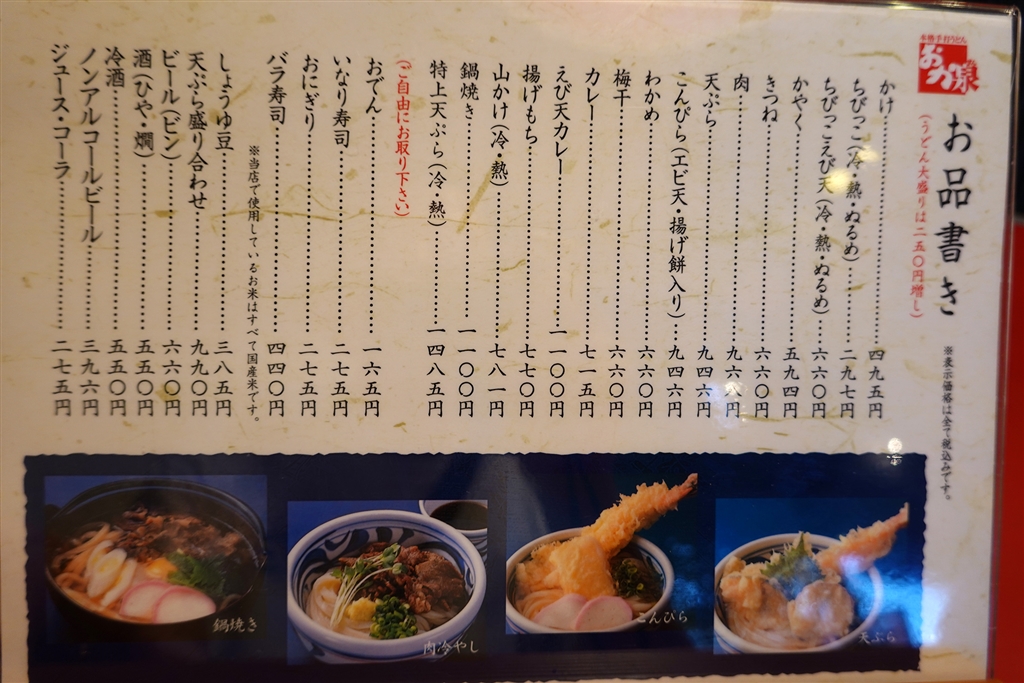 本格手打うどん
おか泉
お品書き
(うどん大盛りは二五〇円増し)
※表示価格は全て税込みです。
かけ……四九五円
ちびっこ(冷・熱・ぬるめ)……二九七円
ちびっこえび天(冷・熱・ぬるめ)……六六〇円
かやく……五九四円
きつね……六六〇円
肉……九六八円
天ぷら……九四六円
こんぴら(エビ天・揚げ餅入り)……九四六円
わかめ……六六〇円
梅干……六六〇円
カレー……七一五円
えび天カレー……一一〇〇円
揚げもち……七七〇円
山かけ(冷・熱)……七八一円
鍋焼き……一一〇〇円
特上天ぷら(冷・熱)……一四八五円
(ご自由にお取り下さい)
おでん……一六五円
いなり寿司……二七五円
おにぎり……二七五円
バラ寿司……四四〇円
※当店で使用しているお米はすべて国産米です。
しょうゆ豆……三八五円
天ぷら盛り合わせ……九九〇円
ビール(ビン)……六六〇円
酒(ひや・燗)……五五〇円
冷酒……五五〇円
ノンアルコールビール……三九六円
ジュース・コーラ……二七五円
鍋焼き
肉冷やし
こんぴら
天ぷら